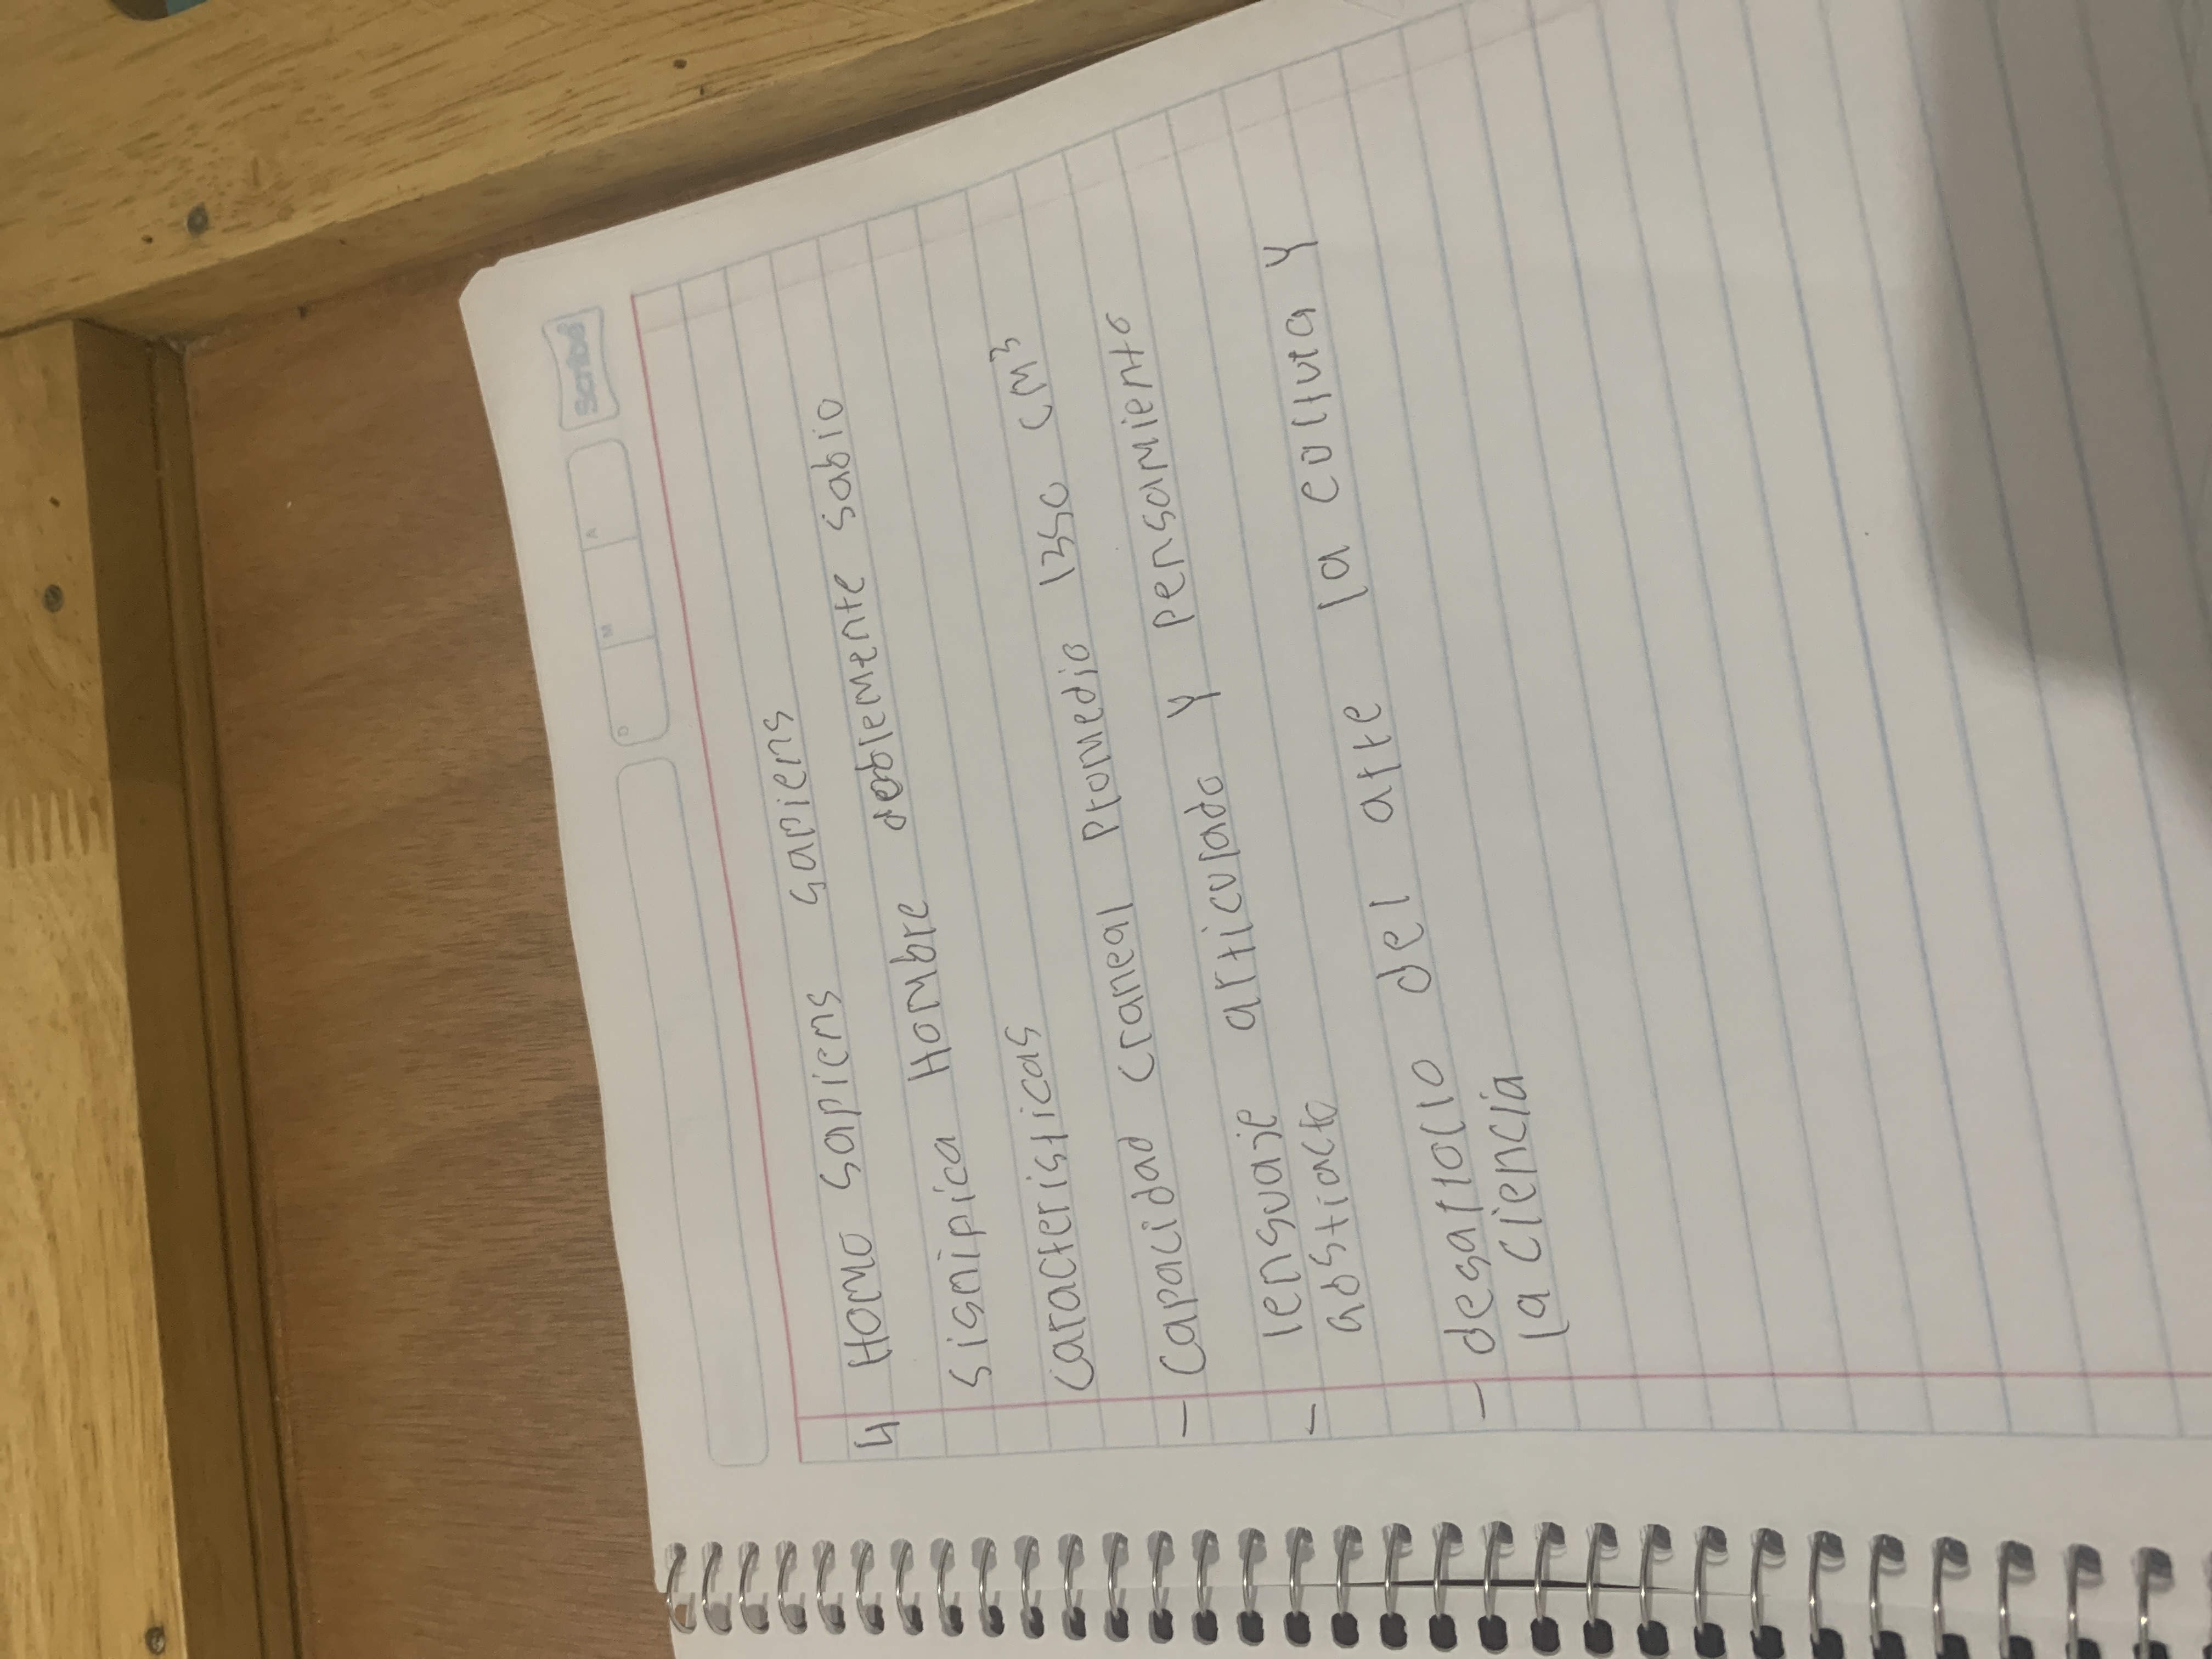 Scribe
D M A
4 Homo sapiens sapiens
sisnipica Hombre doblemente sabio
Caracteristicas
- Capacidad craneal promedio 1350 cm³
- lenguaje articulado y pensamiento
abstracto
- desarrollo del arte la cultura y
la ciencia